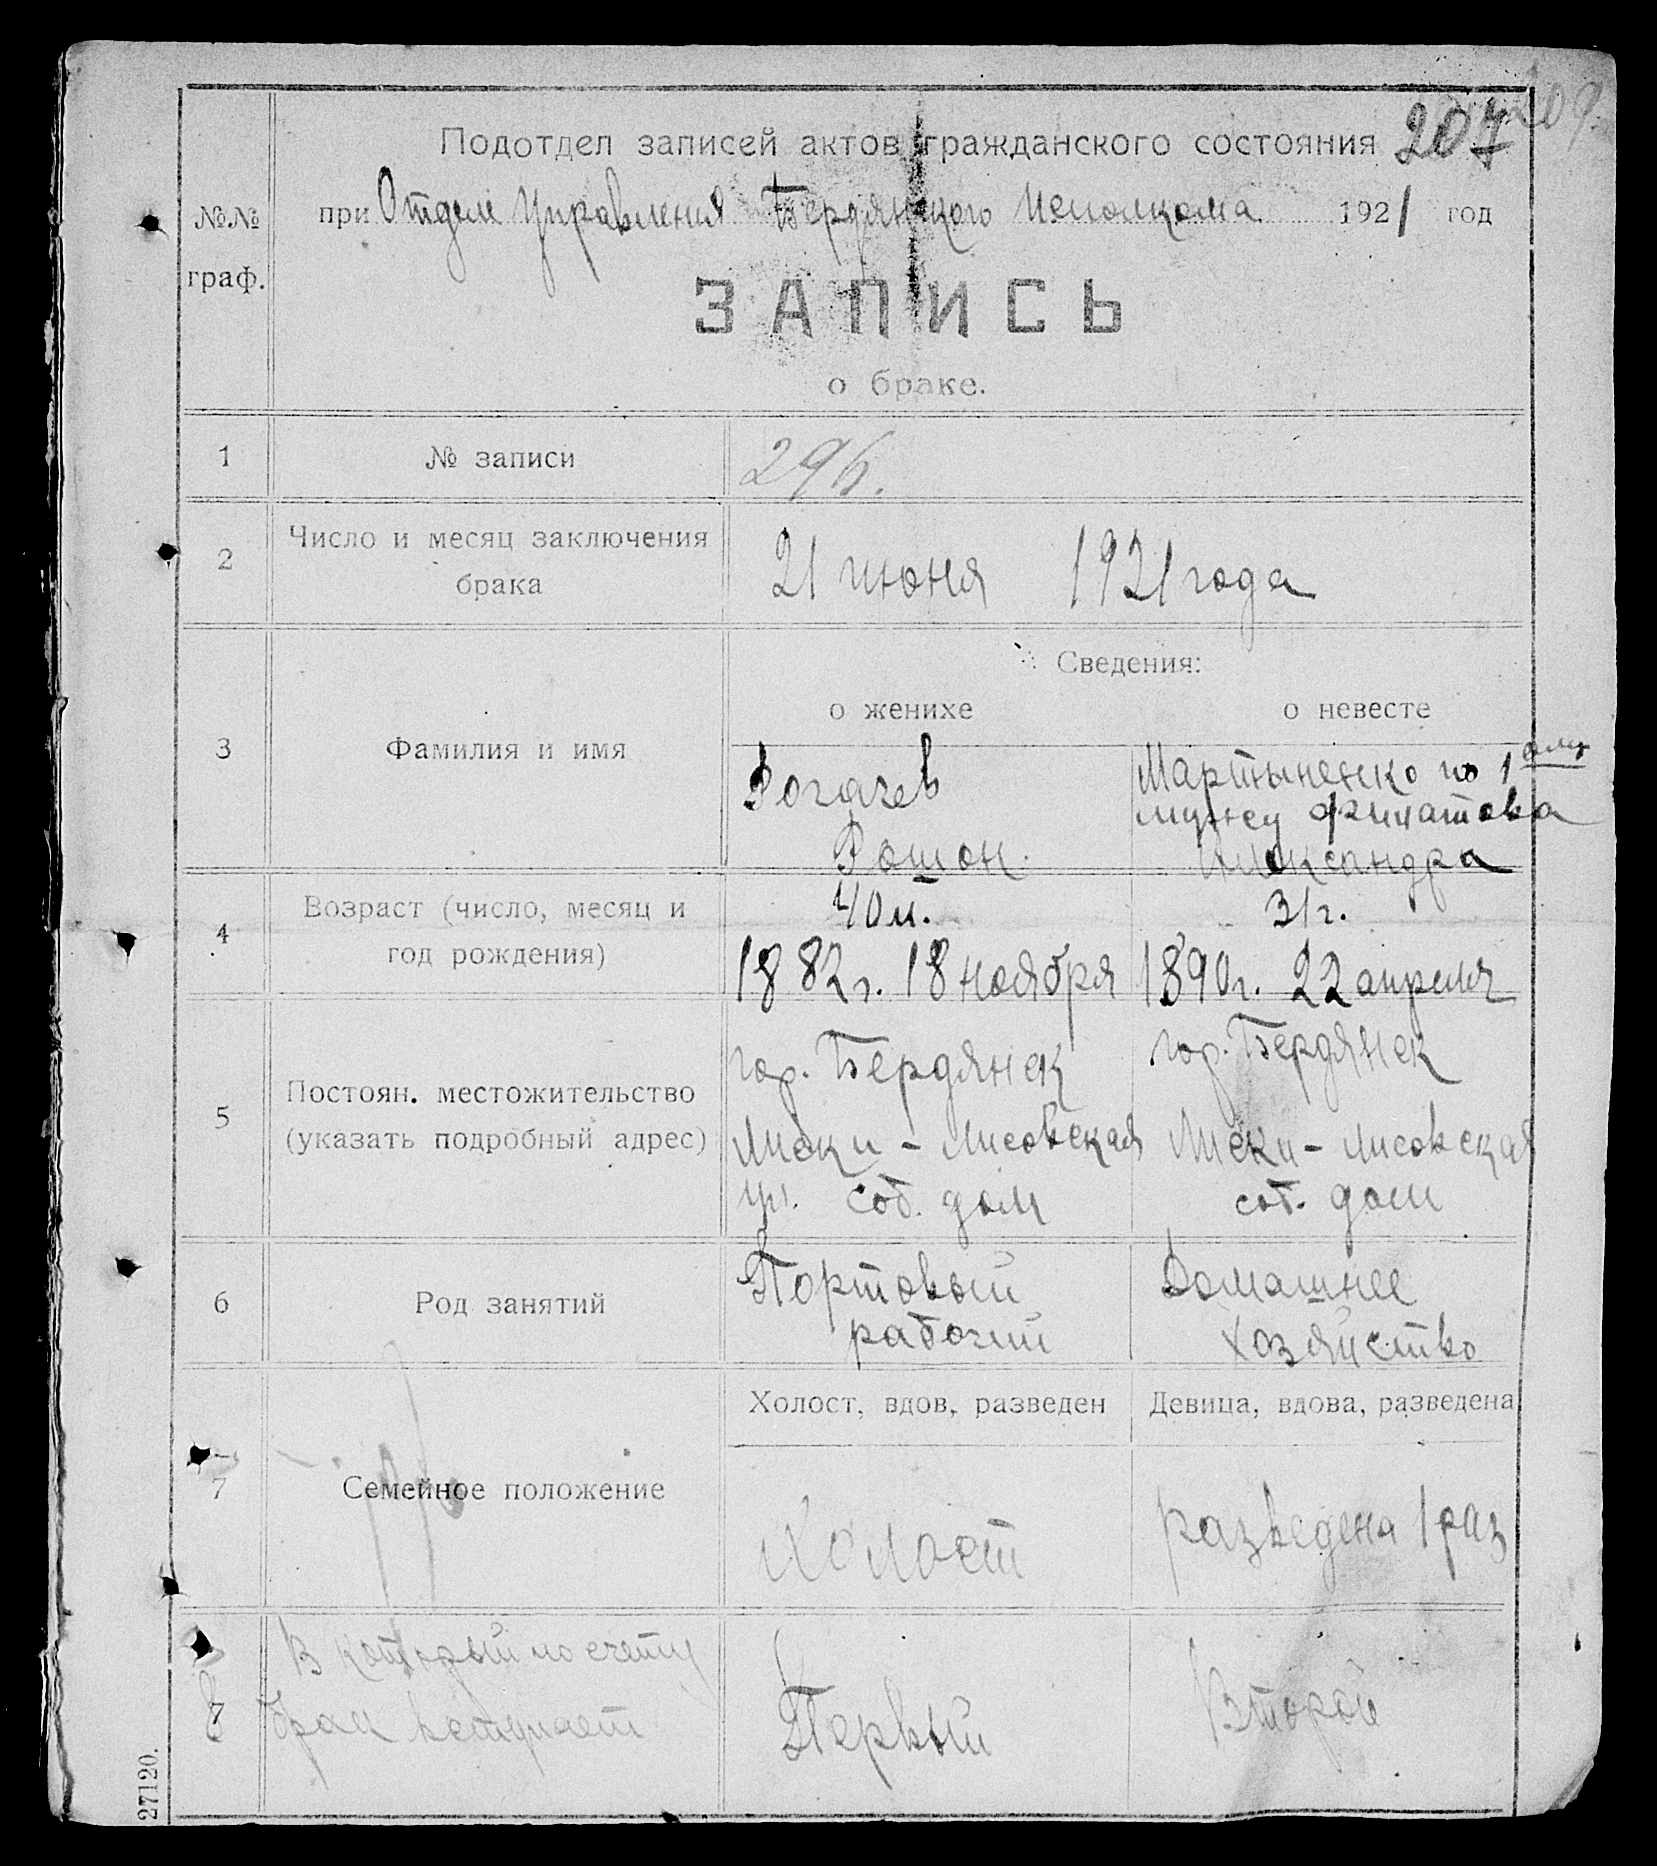 209
207
Подотдел записей актов гражданского состояния
при Отделе Управления Бердянского Исполкома 1921 год
№№
граф.
ЗАПИСЬ
о браке.
1 № записи 296.
2 Число и месяц заключения брака 21 июня 1921 года
Сведения:
о женихе о невесте
3 Фамилия и имя
Рогачев
Рошон
Мартыненко по 1ому
мужу Филатова
Александра
4 Возраст (число, месяц и
год рождения)
40 л. 31 г.
1882 г. 18 ноября 1890 г. 22 апреля
5 Постоян. местожительство
(указать подробный адрес)
гор. Бердянск
Лиски - Лисовская
ул. соб. дом
гор. Бердянск
Лиски - Лисовская
соб. дом
6 Род занятий
Портовый
рабочий
Домашнее
хозяйство
Холост, вдов, разведен Девица, вдова, разведена
7 Семейное положение
Холост разведена 1 раз
7 В который по счету
брак вступает
Первый Второй
27120.